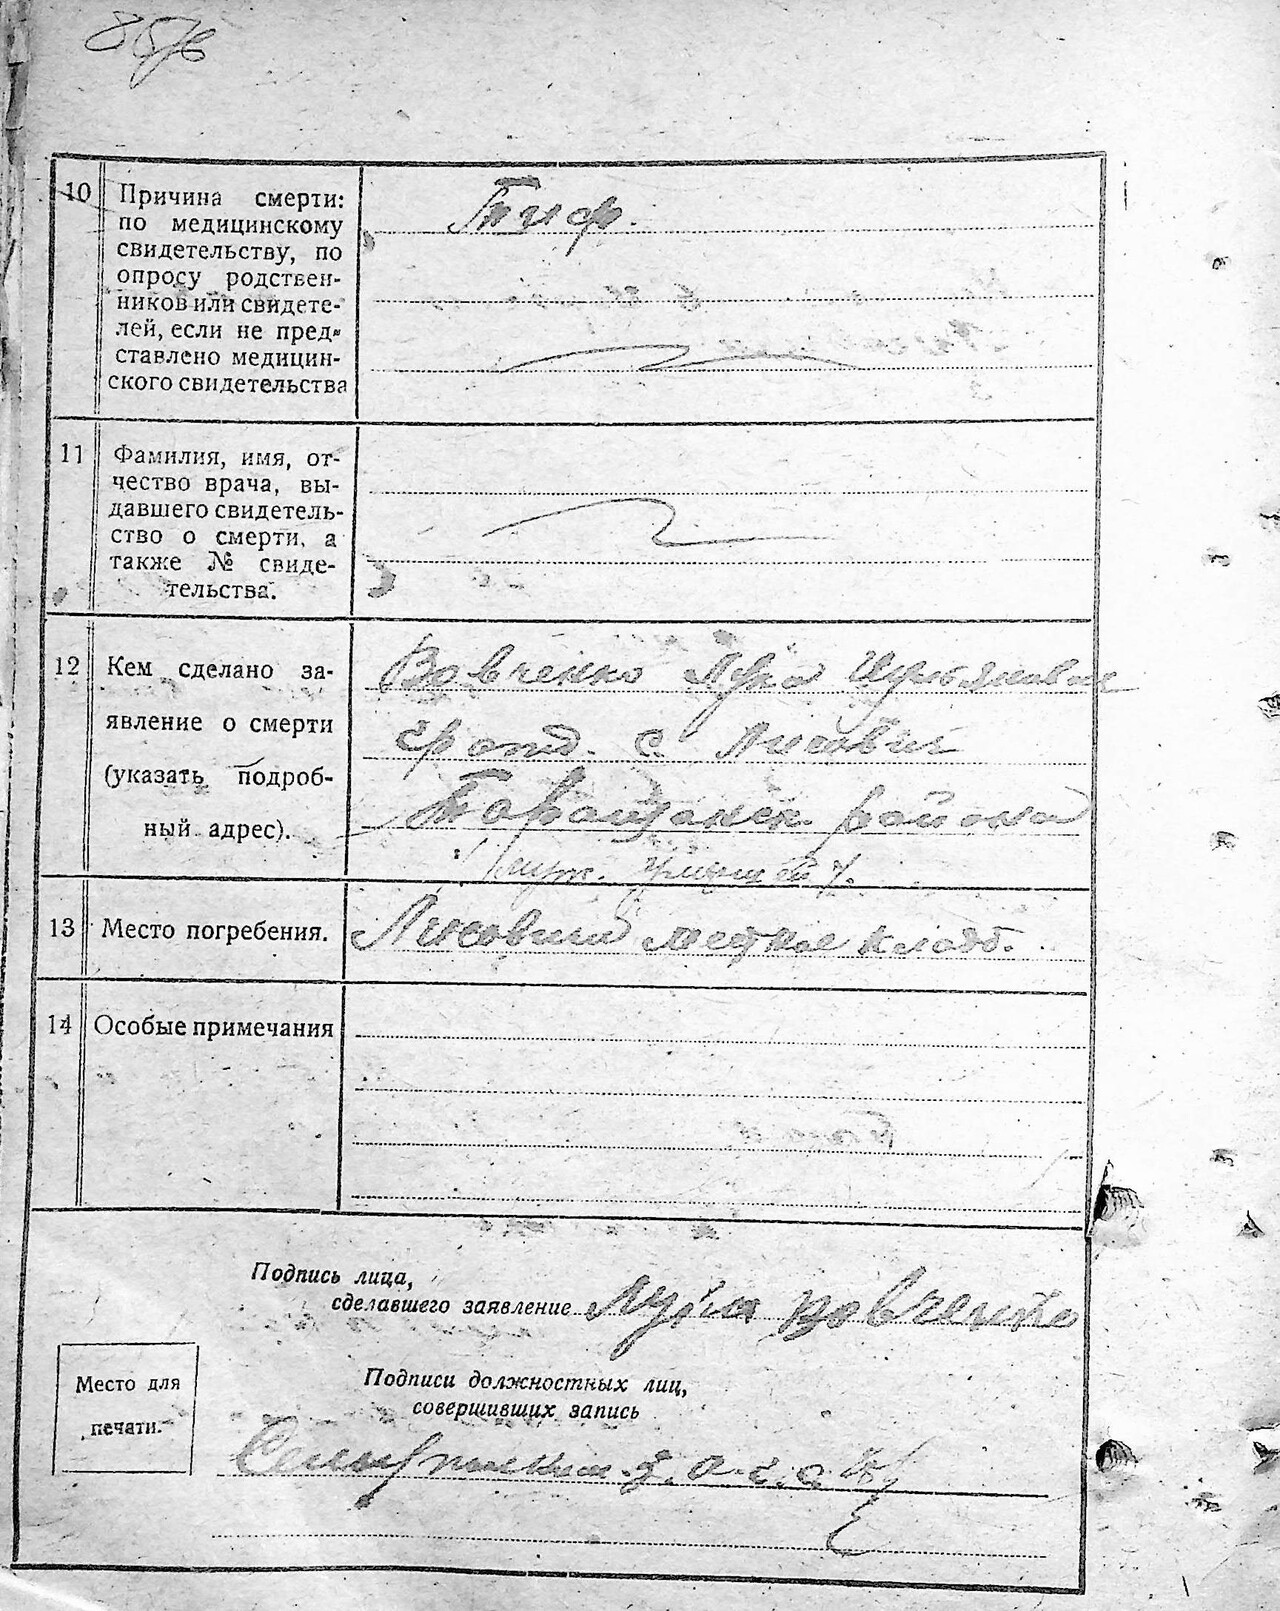 10 Причина смерти:
по медицинскому
свидетельству, по
опросу родствен-
ников или свидете-
лей, если не пред-
ставлено медицин-
ского свидетельства
Тиф.
11 Фамилия, имя, от-
чество врача, вы-
давшего свидетель-
ство о смерти, а
также № свиде-
тельства.
12 Кем сделано за-
явление о смерти
(указать подроб-
ный адрес).
Вовченко
с.
района
13 Место погребения.
местное кладб.
14 Особые примечания
Подпись лица,
сделавшего заявление Вовченко
Место для
печати.
Подписи должностных лиц,
совершивших запись